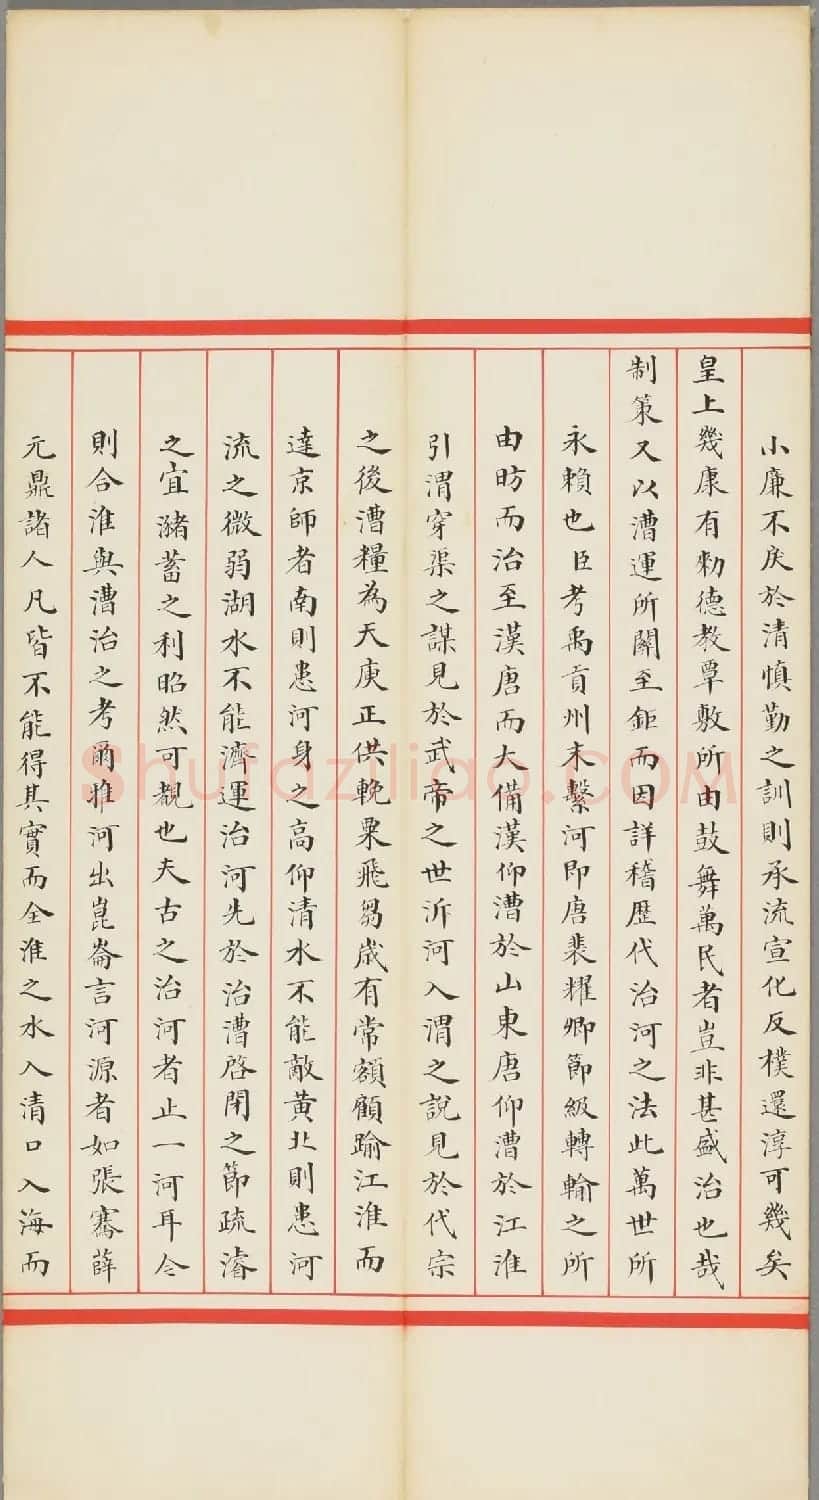 小廉不戾於清慎勤之訓則承流宣化反樸還淳可幾矣
皇上幾康有勑德教覃敷所由鼓舞萬民者豈非甚盛治也哉
制策又以漕運所關至鉅而因詳稽歷代治河之法此萬世所
永賴也臣考禹貢州末繫河即唐裴耀卿節級轉輸之所
由昉而治至漢唐而大備漢仰漕於山東唐仰漕於江淮
引渭穿渠之謀見於武帝之世泝河入渭之說見於代宗
之後漕糧為天庾正供輓粟飛芻歲有常額顧踰江淮而
達京師者南則患河身之高仰清水不能敵黃北則患河
流之微弱湖水不能濟運治河先於治漕啓閉之節疏濬
之宜瀦蓄之利昭然可覩也夫古之治河者止一河耳今
則合淮與漕治之考爾雅河出崑崙言河源者如張騫薛
元鼎諸人凡皆不能得其實而全淮之水入清口入海而
Shufaziliao.COM